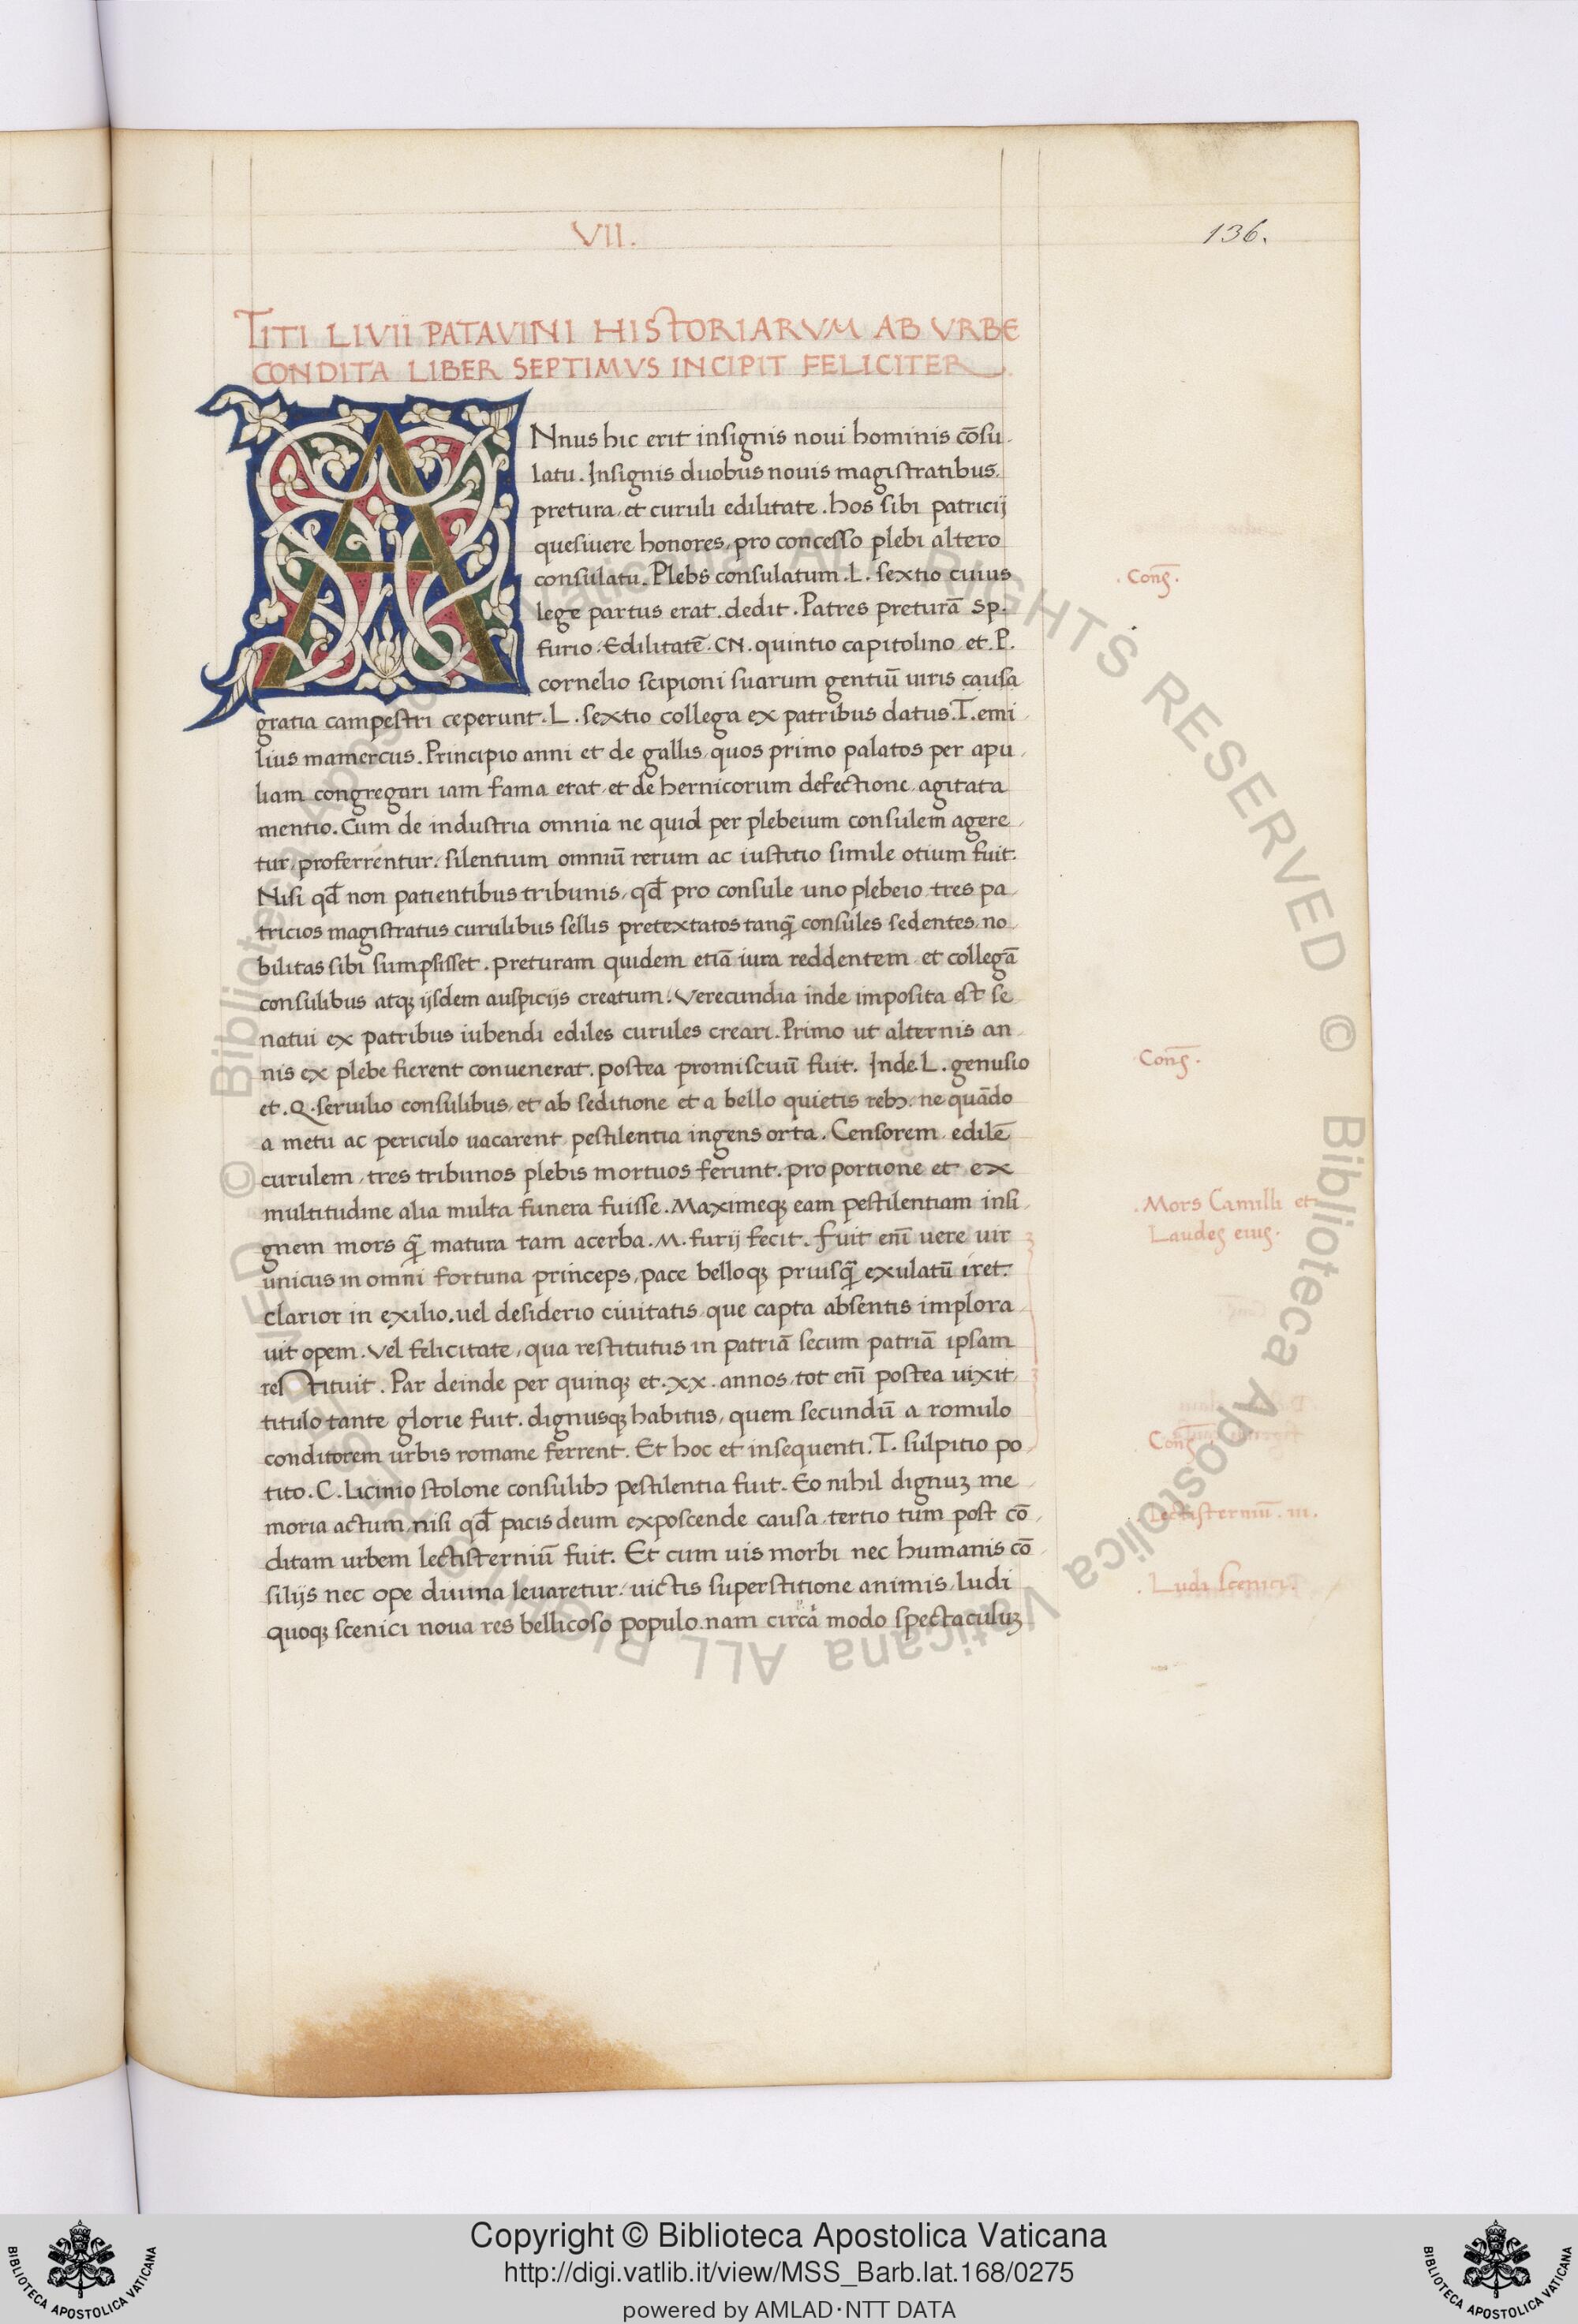 VII.
136.
TITI LIVII PATAVINI HISTORIARVM AB VRBE
CONDITA LIBER SEPTIMVS INCIPIT FELICITER
ANnus hic erit insignis noui hominis cōsu
latu. Insignis duobus nouis magistratibus,
pretura, et curuli edilitate. hos sibi patricij
quesiuere honores, pro concesso plebi altero
consulatu. Plebs consulatum .L. sextio cuius
lege partus erat. dedit. Patres preturā Sp.
furio. Edilitatē. CN. quintio capitolino et .P.
cornelio scipioni suarum gentiū uiris causa
gratia campestri ceperunt. L. sextio collega ex patribus datus .T. emi
lius mamercus. Principio anni et de gallis, quos primo palatos per apu
liam congregari iam fama erat, et de hernicorum defectione, agitata
mentio. Cum de industria omnia ne quid per plebeium consulem agere
tur, proferrentur. silentium omniū rerum ac iustitio simile otium fuit.
Nisi qđ non patientibus tribunis, qđ pro consule uno plebeio tres pa
tricios magistratus curulibus sellis pretextatos tanq̄ consules sedentes, no
bilitas sibi sumpsisset. preturam quidem etiā iura reddentem et collegā
consulibus atq; ijsdem auspicijs creatum. Verecundia inde imposita est se
natui ex patribus iubendi ediles curules creari. Primo ut alternis an
nis ex plebe fierent conuenerat. postea promiscuū fuit. Inde .L. genusio
et .Q. seruilio consulibus, et ab seditione et a bello quietis reb; ne quādo
a metu ac periculo uacarent, pestilentia ingens orta. Censorem, edilē
curulem, tres tribunos plebis mortuos ferunt. pro portione et ex
multitudine alia multa funera fuisse. Maximeq; eam pestilentiam insi
gnem mors q̄ matura tam acerba .M. furij fecit. Fuit enī uere uir
unicus in omni fortuna princeps, pace belloq; priusq̄ exulatū iret.
clarior in exilio. uel desiderio ciuitatis, que capta absentis implora
uit opem. Vel felicitate, qua restitutus in patriā secum patriā ipsam
restituit. Par deinde per quinq; et .xx. annos, tot enī postea uixit
titulo tante glorie fuit. dignusq; habitus, quem secundū a romulo
conditorem urbis romane ferrent. Et hoc et insequenti .T. sulpitio po
tito. C. licinio stolone consulib; pestilentia fuit. Eo nihil dignuz me
moria actum, nisi qđ pacis deum exposcende causa tertio tum post cō
ditam urbem lectisterniū fuit. Et cum uis morbi nec humanis cō
silijs nec ope diuina leuaretur, uictis superstitione animis, ludi
quoq; scenici noua res bellicoso populo. nam circa modo spectaculuz
.Cons̄.
.Cons̄.
.Mors Camilli et
Laudes eius.
Cons̄
.Lectisterniū .iii.
.Ludi scenici.
© Biblioteca Apostolica Vaticana ALL RIGHTS RESERVED
© Biblioteca Apostolica Vaticana ALL RIGHTS RESERVED
Copyright © Biblioteca Apostolica Vaticana
http://digi.vatlib.it/view/MSS_Barb.lat.168/0275
powered by AMLAD·NTT DATA
BIBLIOTECA APOSTOLICA VATICANA
BIBLIOTECA APOSTOLICA VATICANA